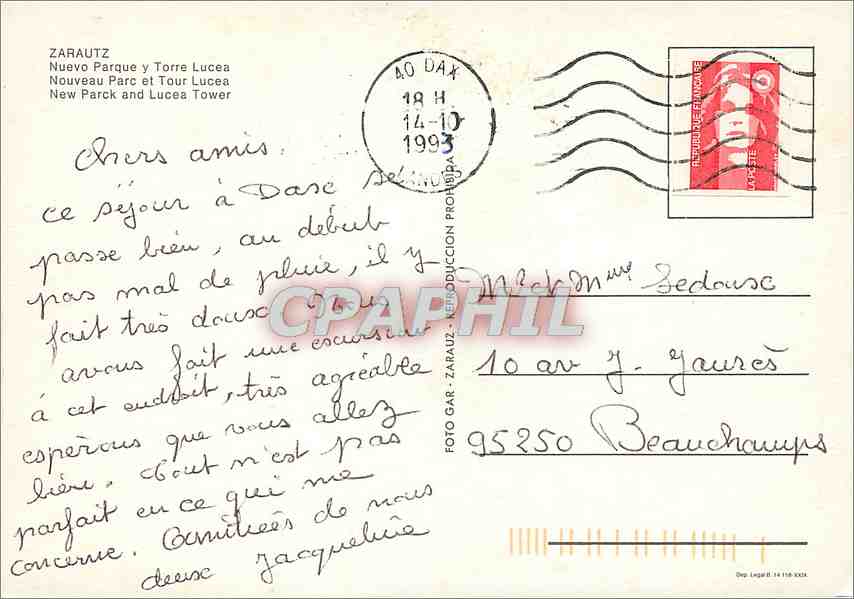 ZARAUTZ
Nuevo Parque y Torre Lucea
Nouveau Parc et Tour Lucea
New Parck and Lucea Tower
40 DAX
18 H
14-10
1993
LANDES
RÉPUBLIQUE FRANÇAISE
LA POSTE
Chers amis.
ce séjour à Dax se
passe bien, au début
pas mal de pluie, il y
fait très doux. Nous
avons fait une excursion
à cet endroit, très agréable
esperons que vous allez
bien. Tout n'est pas
parfait en ce qui me
concerne. Amitiées de nous
deux Jacqueline
CPAPHIL
FOTO GAR - ZARAUZ - REPRODUCCION PROHIBIDA
Mr et Mme Ledoux
10 av J. Jaurès
95250 Beauchamps
Dep. Legal B. 14 118-XXIX